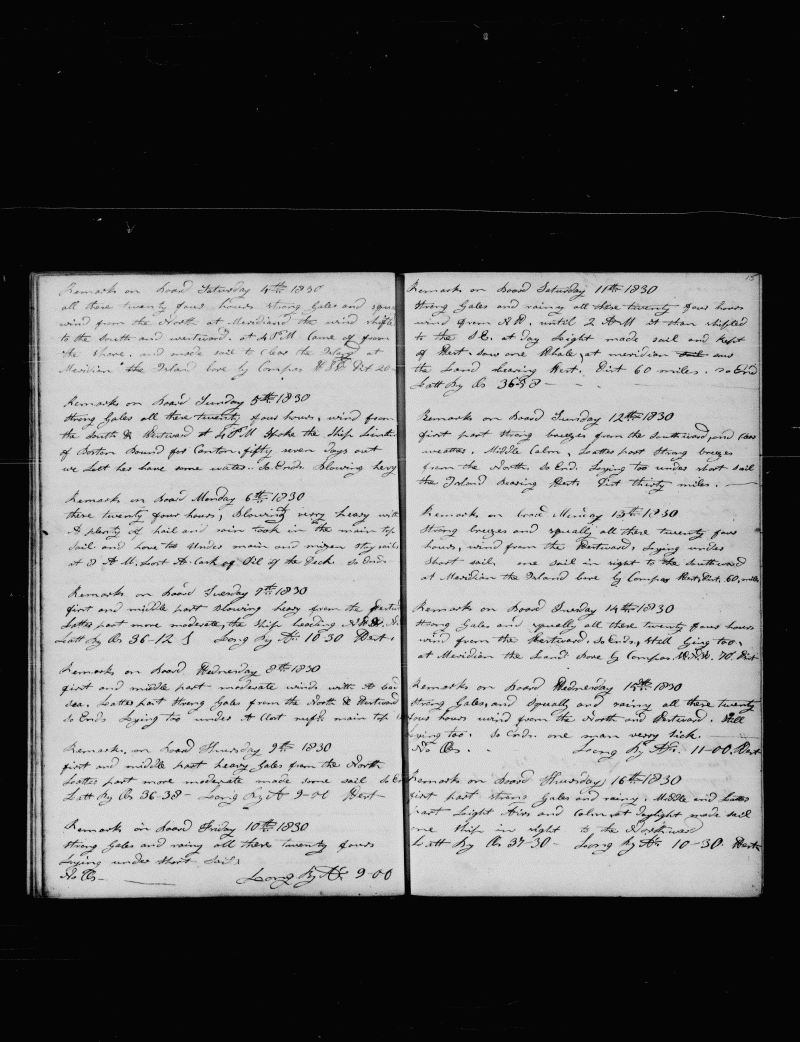 Remarks on Board Saturday 4th 1830
all these twenty four hours strong Gales and
wind from the North at Meridian the wind shifted
to the South and westward. at 4 P.M Came of from
the Shore. and made sail to Clear the Island at
Meridian the Island bore by Compas Dist 20
Remarks on Board Sunday 5th 1830
Strong Gales all these twenty four hours, wind from
the South & Westward at 4 P.M Spoke the Ship
of Boston Bound for Canton. fifty seven days out
we Lett her have some water. So Ends Blowing hevy
Remarks on Board Monday 6th 1830
these twenty four hours, Blowing very heavy with
A plenty of hail and rain took in the main top
Sail and hove too Under main and mizen stay sails
at 8 A.M. Lost A Cask of Oil of the Deck. So Ends
Remarks on Board Tuesday 7th 1830
first and middle part Blowing heavy from the
Latter part more moderate, the Ship heading
Latt By Ob 36-12 Long By Ar 10 30 West
Remarks on Board Wednesday 8th 1830
first and middle part moderate winds with A bad
Sea. Latter part Strong Gales from the North & Westward
So Ends Lying too under A Clost reef'd main top
Remarks on Board Thursday 9th 1830
first and middle part heavy Gales from the North
Latter part more moderate made some sail So
Latt By Ob 36-38 - Long By Ar 9-00 West
Remarks on Board Friday 10th 1830
Strong Gales and rainy all these twenty fours
Lying under Short Sails
No Ob - Long By Ar 9-00
15
Remarks on Board Saturday 11th 1830
Strong Gales and rainy all these twenty four hours
wind from N.W. until 2 A M it than shifted
to the S.E. at day Leight made sail and kept
of West. Saw one Whale, at meridian saw
the Land bearing West. Dist 60 miles. So End
Latt By Ob 36-28
Remarks on Board Sunday 12th 1830
first part Strong breezes from the Southward, and
weather. Middle Calm, Latter part Strong breezes
from the North. So End. Lying too under short sail
the Island Bearing West Dist thirty miles.
Remarks on Board Monday 13th 1830
Strong breezes and squally all these twenty four
hours, wind from the Westward. Lying under
Short sail, one sail in sight to the Southward
at Meridian the Island bore by Compas West. Dist. 60, miles
Remarks on Board Tuesday 14th 1830
Strong Gales and squally all these twenty four hours
wind from the Westward. So Ends, Still Lying too,
at Meridian the Land bore by Compas 70. Dist
Remarks on Board Wednesday 15th 1830
Strong Gales, and Squally and rainy all these twenty
four hours wind from the North and Westward. Still
lying too. So Ends. one man very sick.
No Ob. Long By Ar. 11-00. West
Remarks on Board Thursday 16th 1830
first part strong Gales and rainy. Middle and Latter
part Leight Aires and Calm. at Daylight made sail
one Ship in sight to the Northward
Latt By Ob 37-30 - Long By Ar 10-30 West